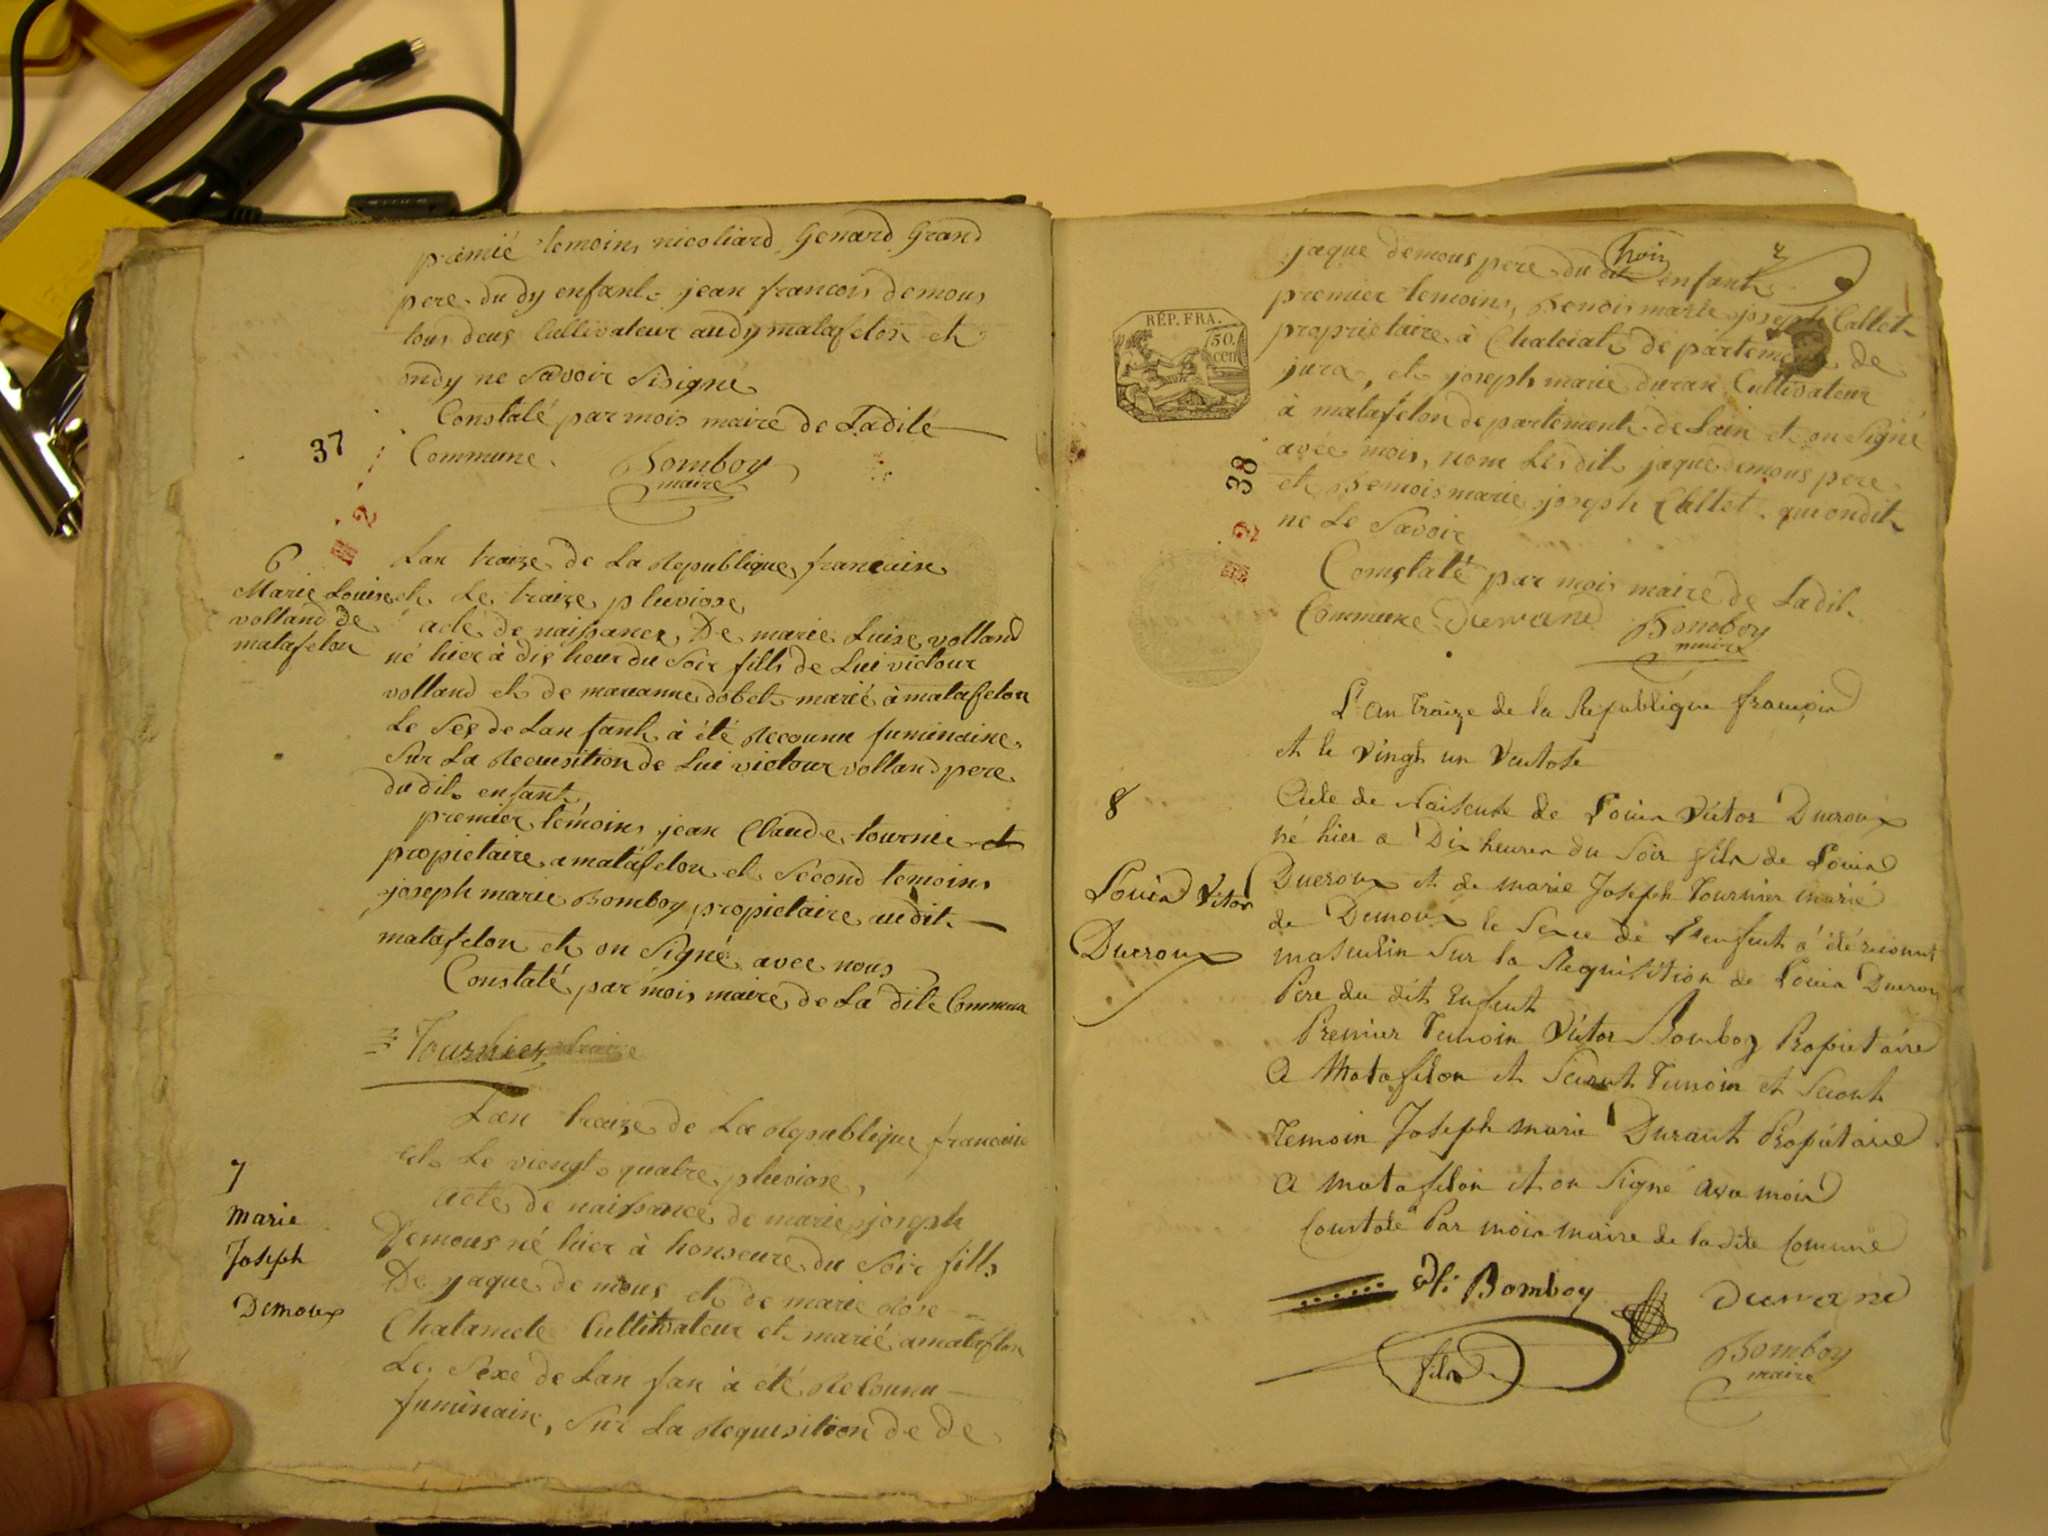 premié temoins nicoliard Genard Grand
pere du dy enfant jean francois demous
tous deus Cultivateur audy matafelon et
ondy ne Savoir Sisigné
Constaté par mois maire de Ladite
Commune. Bomboy
maire
37
2
6
Marie Louise
volland de
matafelon
Lan traize de La Republique francaise
et Le traize pluviose
acte de naissance De marie Luise volland
né hier à dis heur du Soir fills de Lui victour
volland et de marianne dobet marié à matafelon
Le Ses de Lan fant à été Reconnu fuminaine
Sur La Requisition de Lui victour volland pere
dudit enfant
premier temoins jean Claude tournie et
propietaire a matafelon et Second temoins
joseph marie Bomboy propietaire audit
matafelon et on Signé avec nous
Constaté par mois maire de La dite Commun
Tournier
7
Marie
Joseph
Demoux
Lan traize de La Republique francaise
et Le viengt quatre pluviose
acte de naissance de marie joseph
Demous né hier à honseure du Soir fills
De yaque de mous et de marie Rose
Chatamete Cultivateur et marié a matafelon
Le Sexe de Lan fan à été Reconnu
fuminaine, Sur La Requisition de De
jaque demous pere du dit enfant
premier temoins, Benois marie joseph Callet
proprietaire à departement de
jura, et joseph marie duran Cultivateur
à matafelon departement de Lain et on Signé
avec mois, nom Lesdit jaque demous pere
et Benois marie joseph Callet qui ondit
ne Le Savoir
REP. FRA.
50.
cen
38
2
Constaté par mois maire de Ladit
Commune Durrand Bomboy
maire
L'an traize de la Republique françoise
et le vingt un Ventose
8
Louis Vitor
Ducroux
Acte de Naisence de Louis Victor Ducroux
né hier a Dix heures du Soir fils de Louis
Ducroux et de marie Joseph Tournier marié
de Demoux le Sexe de l'enfent a été reconnut
masculin Sur la Requisition de Louis Ducrou
Pere du dit Enfent
Premier Temoin Victor Bomboy Propietaire
A Matafelon et Secont Temoin et Secont
Temoin Joseph marie Duraut Propietaire
A matafelon et on Signé avec mois
Constaté Par mois maire de la dite Comune
Bomboy Durrand
fils
Bomboy
maire